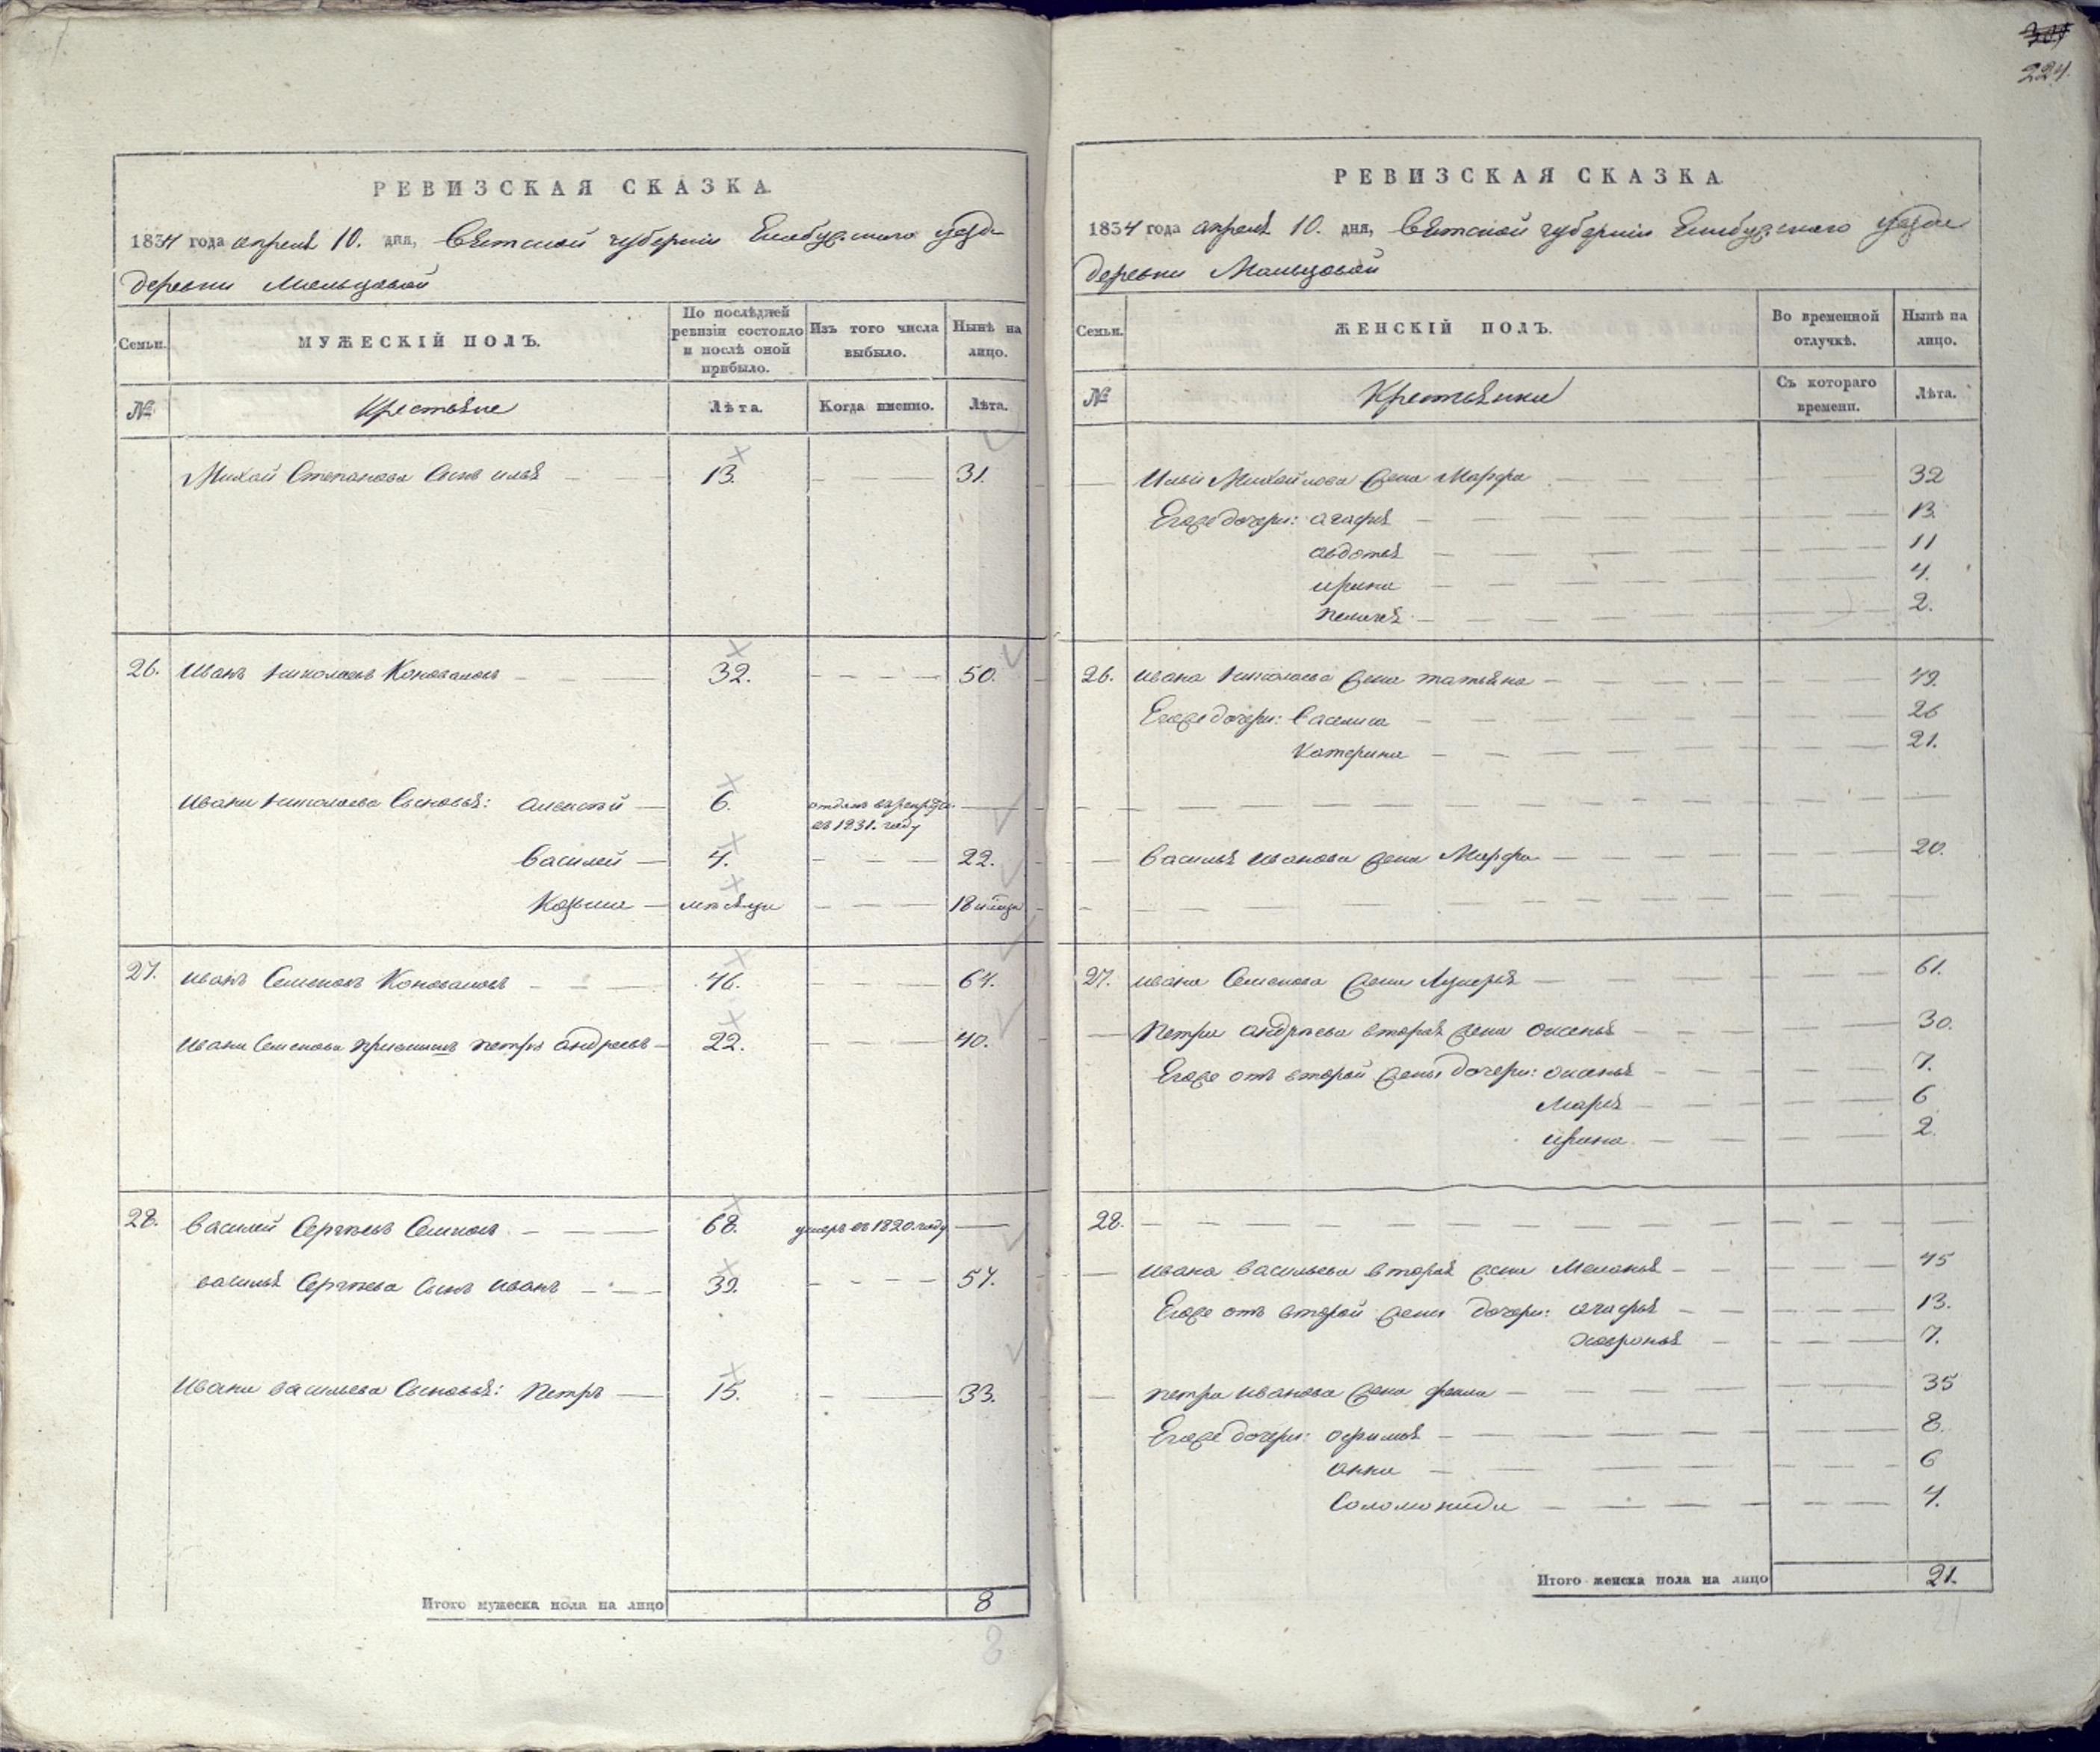 305
224.
РЕВИЗСКАЯ СКАЗКА.
1834 года апреля 10. дня, Вятской губернии Елабужского уезда
деревни Мальцовой
Семьи. МУЖЕСКІЙ ПОЛЪ. По послѣдней ревизіи состояло и послѣ оной прибыло. Изъ того числа выбыло. Нынѣ на лицо.
№ Крестьяне Лѣта. Когда именно. Лѣта.
Михай Степанова сынъ илья 13. 31.
26. Иванъ Николаевъ Коноваловъ 32. 50.
Ивана Николаева Сыновья: алексѣй 6. отданъ в рекруты 
въ 1831. году
Василей 4. 22.
Козьма мѣсяца 18 и мѣсяца
27. Иванъ Семеновъ Коноваловъ 46. 64.
Ивана Семенова приемышъ петръ андреевъ 22. 40.
28. Василей Сергѣевъ 68. умеръ въ 1820. году
василья Сергѣева сынъ иванъ 39. 57.
Ивана васильева Сыновья: петръ 15. 33.
Итого мужеска пола на лицо 8
8
РЕВИЗСКАЯ СКАЗКА.
1834 года апреля 10. дня, Вятской губернии Елабужского уезда
деревни Мальцовой
Семьи. ЖЕНСКІЙ ПОЛЪ. Во временной отлучкѣ. Нынѣ на лицо.
№ Крестьянки Съ котораго времени. Лѣта.
Ильи Михайлова жена Марфа 32
Егоже дочери: агафья 13.
авдотья 11
ирина 4.
пелагея 2.
26. ивана Николаева жена татьяна 49.
Егоже дочери: Василиса 26
Катерина 21.
Василья иванова жена Марфа 20.
27. ивана Семенова жена Лукерья 61.
петра андрѣева вторая жена оксенья 30.
Егоже отъ второй жены дочери: оксенья 7.
Марья 6
ирина 2.
28.
ивана васильева вторая жена Меланья 45
Егоже отъ второй жены дочери: агафья 13.
ховронья 7.
петра иванова жена фекла 35
Егоже дочери: офимья 8.
анна 6
Соломонида 4.
Итого женска пола на лицо 21.
21